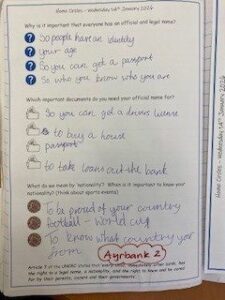 Home Circles - Wednesday 14th January 2026
Why is it important that everyone has an official and legal name?
So people have an identity
Your age
So you can get a passport
So who you know who you are
Which important documents do you need your official name for?
So you can get a drivers license
to buy a house
passport
to take loans out the bank
What do we mean by 'nationality'? When is it important to know your
nationality? (think about sports events)
To be proud of your country
football - world cup
To know what country your
from
Ayrbank 2
Article 7 of the UNCRC states that every child, immediately after birth, has
the right to a legal name, a nationality, and the right to know and be cared
for by their parents, carers and their governments.
Home Circles - Wednesday 14th January 2026